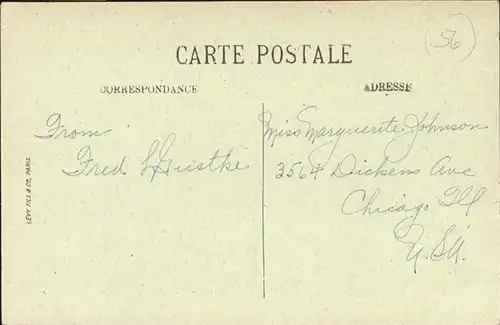 56
CARTE POSTALE
CORRESPONDANCE
ADRESSE
From
Fred
LEVY FILS & Cie, PARIS
Miss Marguerite Johnson
3564 Dickens Ave
Chicago Ill
U.S.A.